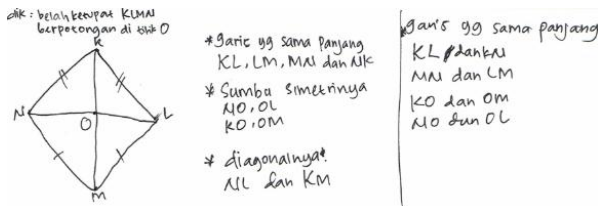 dik : belah ketupat KLMN
berpotongan di titik O
K
N
O
L
M
* garis yg sama panjang
KL, LM, MN dan NK
* Sumbu simetrinya
NO, OL
KO, OM
* diagonalnya:
NL dan KM
garis yg sama panjang
KL dan KN
MN dan LM
KO dan OM
NO dan OL